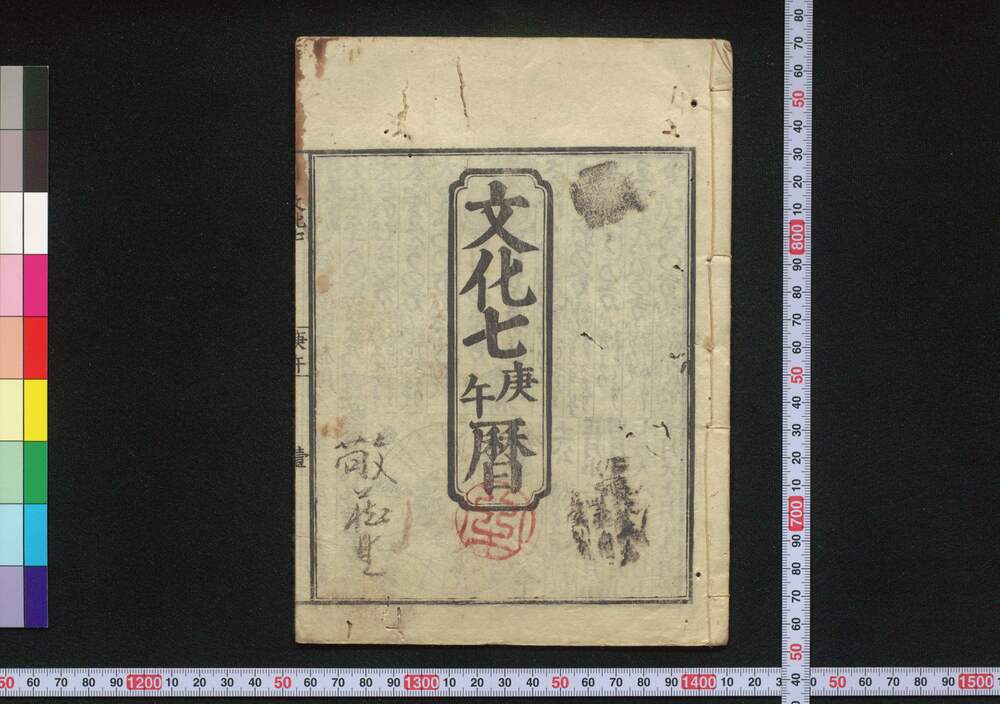 文化七
庚午
暦
文化七
庚午
壹
敬
生
80
70
60
50
40
30
20
10
800
90
80
70
60
50
40
30
20
10
700
90
80
70
60
50
40
50 60 70 80 90 1200 10 20 30 40 50 60 70 80 90 1300 10 20 30 40 50 60 70 80 90 1400 10 20 3 0 50 60 70 80 90 1500